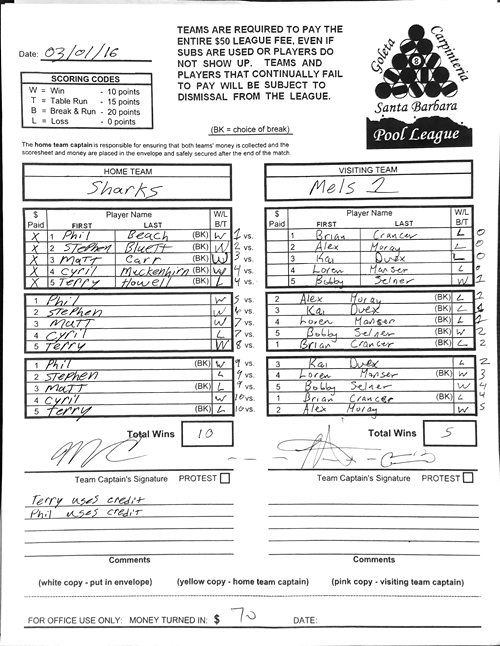 Date: 03/01/16
TEAMS ARE REQUIRED TO PAY THE
ENTIRE $50 LEAGUE FEE, EVEN IF
SUBS ARE USED OR PLAYERS DO
NOT SHOW UP. TEAMS AND
PLAYERS THAT CONTINUALLY FAIL
TO PAY WILL BE SUBJECT TO
DISMISSAL FROM THE LEAGUE.
SCORING CODES
W = Win - 10 points
T = Table Run - 15 points
B = Break & Run - 20 points
L = Loss - 0 points
(BK = choice of break)
Goleta
Carpinteria
8
Santa Barbara
Pool League
The home team captain is responsible for ensuring that both teams' money is collected and the
scoresheet and money are placed in the envelope and safely secured after the end of the match.
HOME TEAM
Sharks
$ Player Name W/L
Paid FIRST LAST B/T
X 1 Phil Beach (BK) W 1 vs.
X 2 Stephen Bluett (BK) W 2 vs.
X 3 Matt Carr (BK) W 3 vs.
X 4 Cyril Muckenhirn (BK) W 4 vs.
X 5 Terry Howell (BK) L 4 vs.
1 Phil W 5 vs.
2 Stephen W 6 vs.
3 Matt W 7 vs.
4 Cyril L 7 vs.
5 Terry W 8 vs.
1 Phil (BK) W 9 vs.
2 Stephen L 9 vs.
3 Matt (BK) L 9 vs.
4 Cyril W 10 vs.
5 Terry (BK) L 10 vs.
VISITING TEAM
Mels 2
$ Player Name W/L
Paid FIRST LAST B/T
1 Brian Crancer L 0
2 Alex Moray L 0
3 Kai Duex L 0
4 Loren Manser L 0
5 Bobby Selner W 1
2 Alex Moray (BK) L 1
3 Kai Duex (BK) L 1
4 Loren Manser (BK) L 1
5 Bobby Selner (BK) W 2
1 Brian Crancer (BK) L 2
3 Kai Duex L 2
4 Loren Manser (BK) W 3
5 Bobby Selner W 4
1 Brian Crancer (BK) L 4
2 Alex Moray W 5
Total Wins 10
Total Wins 5
Team Captain's Signature PROTEST
Team Captain's Signature PROTEST
Terry uses credit
Phil uses credit
Comments
Comments
(white copy - put in envelope) (yellow copy - home team captain) (pink copy - visiting team captain)
FOR OFFICE USE ONLY: MONEY TURNED IN: $ 70 DATE: